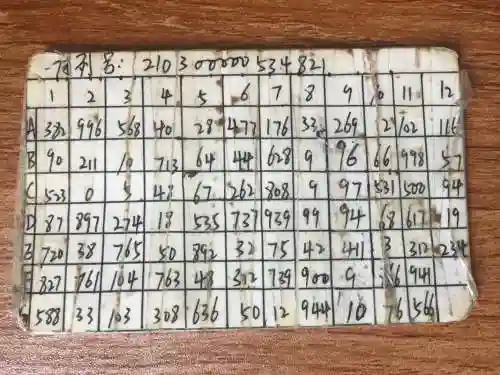 序号: 210300000534821
1 2 3 4 5 6 7 8 9 10 11 12
A 382 996 568 40 28 477 176 33 269 2 102 116
B 90 211 10 713 64 44 628 9 96 66 998 57
C 523 0 5 48 67 262 808 9 97 531 500 94
D 87 897 274 18 535 737 939 99 94 68 617 19
E 720 38 765 50 892 32 75 42 411 3 312 234
F 827 761 104 763 48 312 739 900 9 16 941
588 33 103 308 636 50 12 944 10 76 566